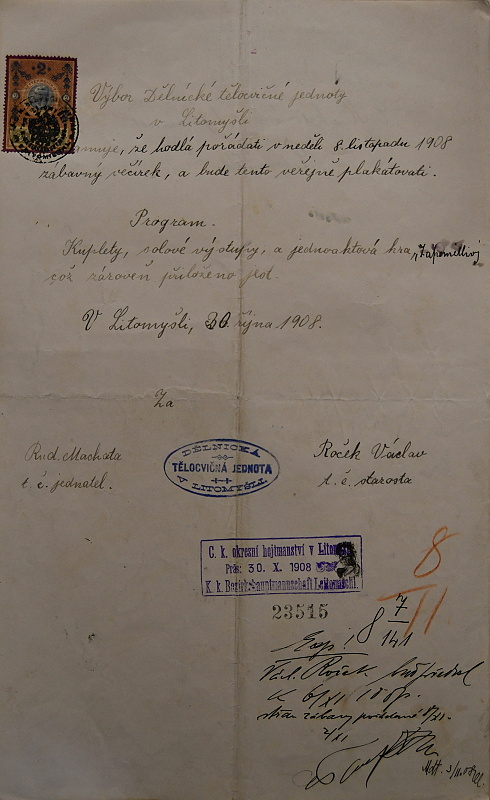 2
Výbor Dělnické tělocvičné jednoty
v Litomyšli
oznamuje, že hodlá pořádati v neděli 8. listopadu 1908
zábavný večírek, a bude tento veřejně plakátovati.
Program.
Kuplety, solové výstupy, a jednoaktová hra, "Zapomětlivý
což zároveň přiloženo jest.
V Litomyšli, 30. října 1908.
Za
Rud. Machata
t. č. jednatel.
DĚLNICKÁ
TĚLOCVIČNÁ JEDNOTA
V LITOMYŠLI
Roček Václav
t. č. starosta
C. k. okresní hejtmanství v Litomyšli
Präs: 30. X. 1908
K. k. Bezirkshauptmannschaft Leitomischl.
23515
8
11
8 7
141
Václ. Roček
k 6/XI 1908.
stran zábavy pořádané 8/XI.
2/XI